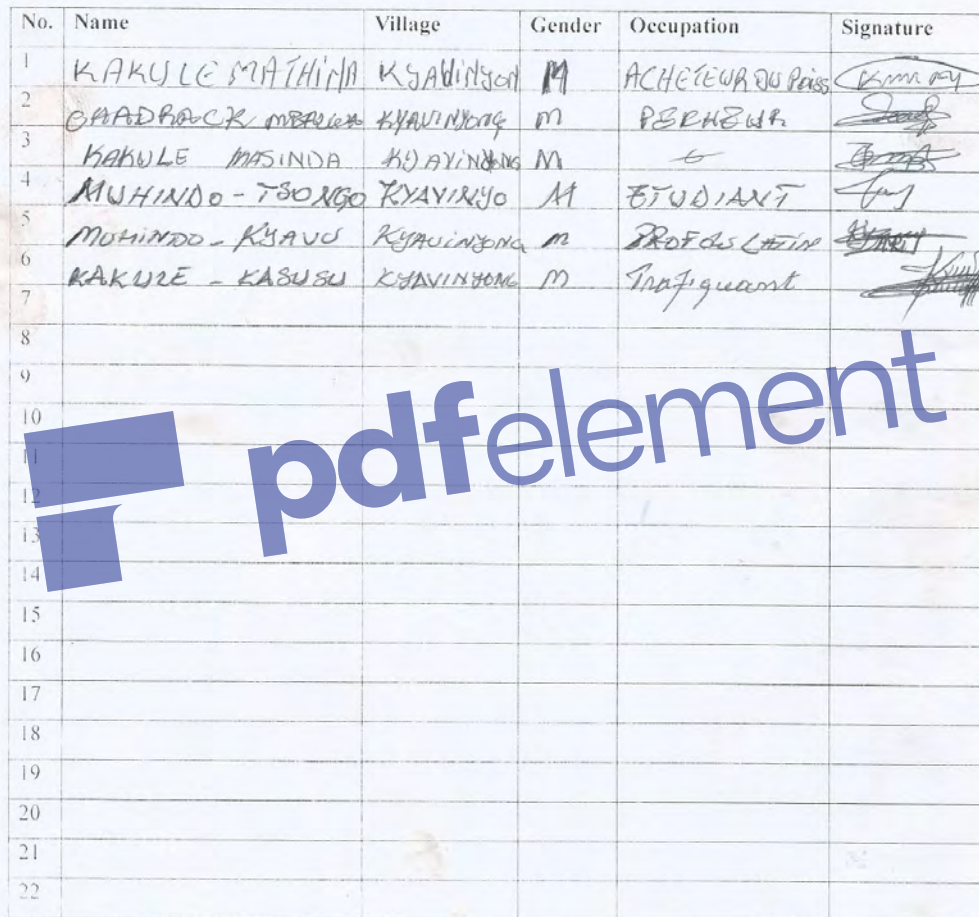 No. Name Village Gender Occupation Signature
1 KAKULE MATHINA KYAVINYON M ACHETEUR DU Poiss
2 KYAVINYONG M
3 KAKULE MASINDA KYAVINYONG M
4 MUHINDO - TSONGO KYAVINYO M ETUDIANT
5 MUHINDO - KYAVU KYAVINYONG M PROF
6 KAKULE - KASUSU KYAVINYONG M Trafiquant
7
8
9
10
11
12
13
14
15
16
17
18
19
20
21
22
pdfelement